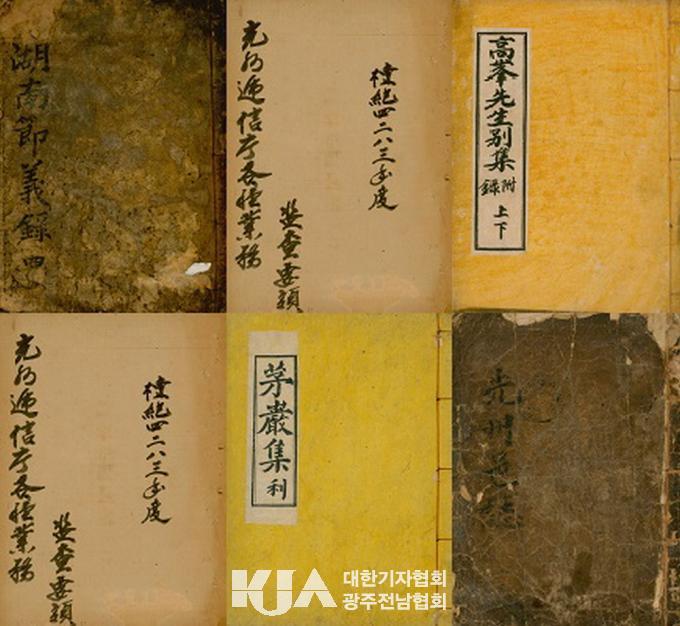 湖南節義錄 四
檀紀四二八三年度
光州遞信庁各種業務
監査要領
高峯先生別集 附錄 上下
檀紀四二八三年度
光州遞信庁各種業務
監査要領
茅巖集 利
光州邑誌
KJA 대한기자협회
광주전남협회